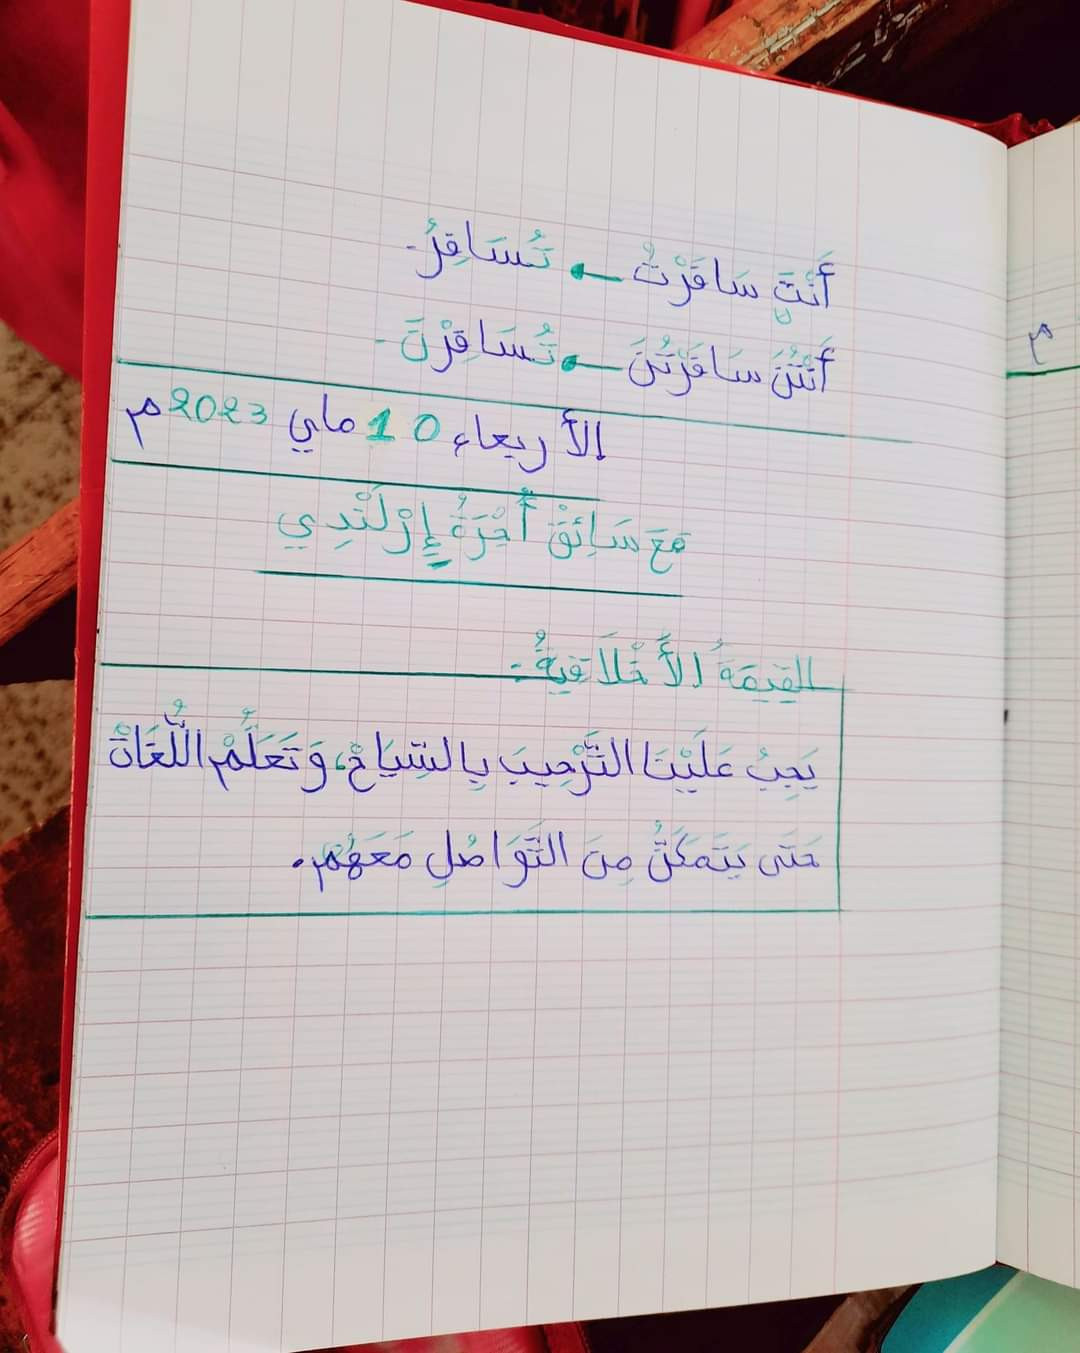 أَنْتِ سَافَرْتُ ← تُسَافِرُ.
أَنْتُنَ سَافَرْتُنَ ← تُسَافِرْنَ.
الأربعاء 10 ماي 2023م
مَعَ سَائِقْ أُجْرَةُ إِرْلَنْدِي
القِيمَةُ الأَخْلَاقِيَةُ:
يَجِبُ عَلَيْنَا التَّرْحِيبَ بِالسِّيَاحْ، وَتَعَلُّمْ اللُّغَاتْ
حَتَى يَتَمَكَنُّ مِنَ التَّوَاصُلِ مَعَهُمْ.
م